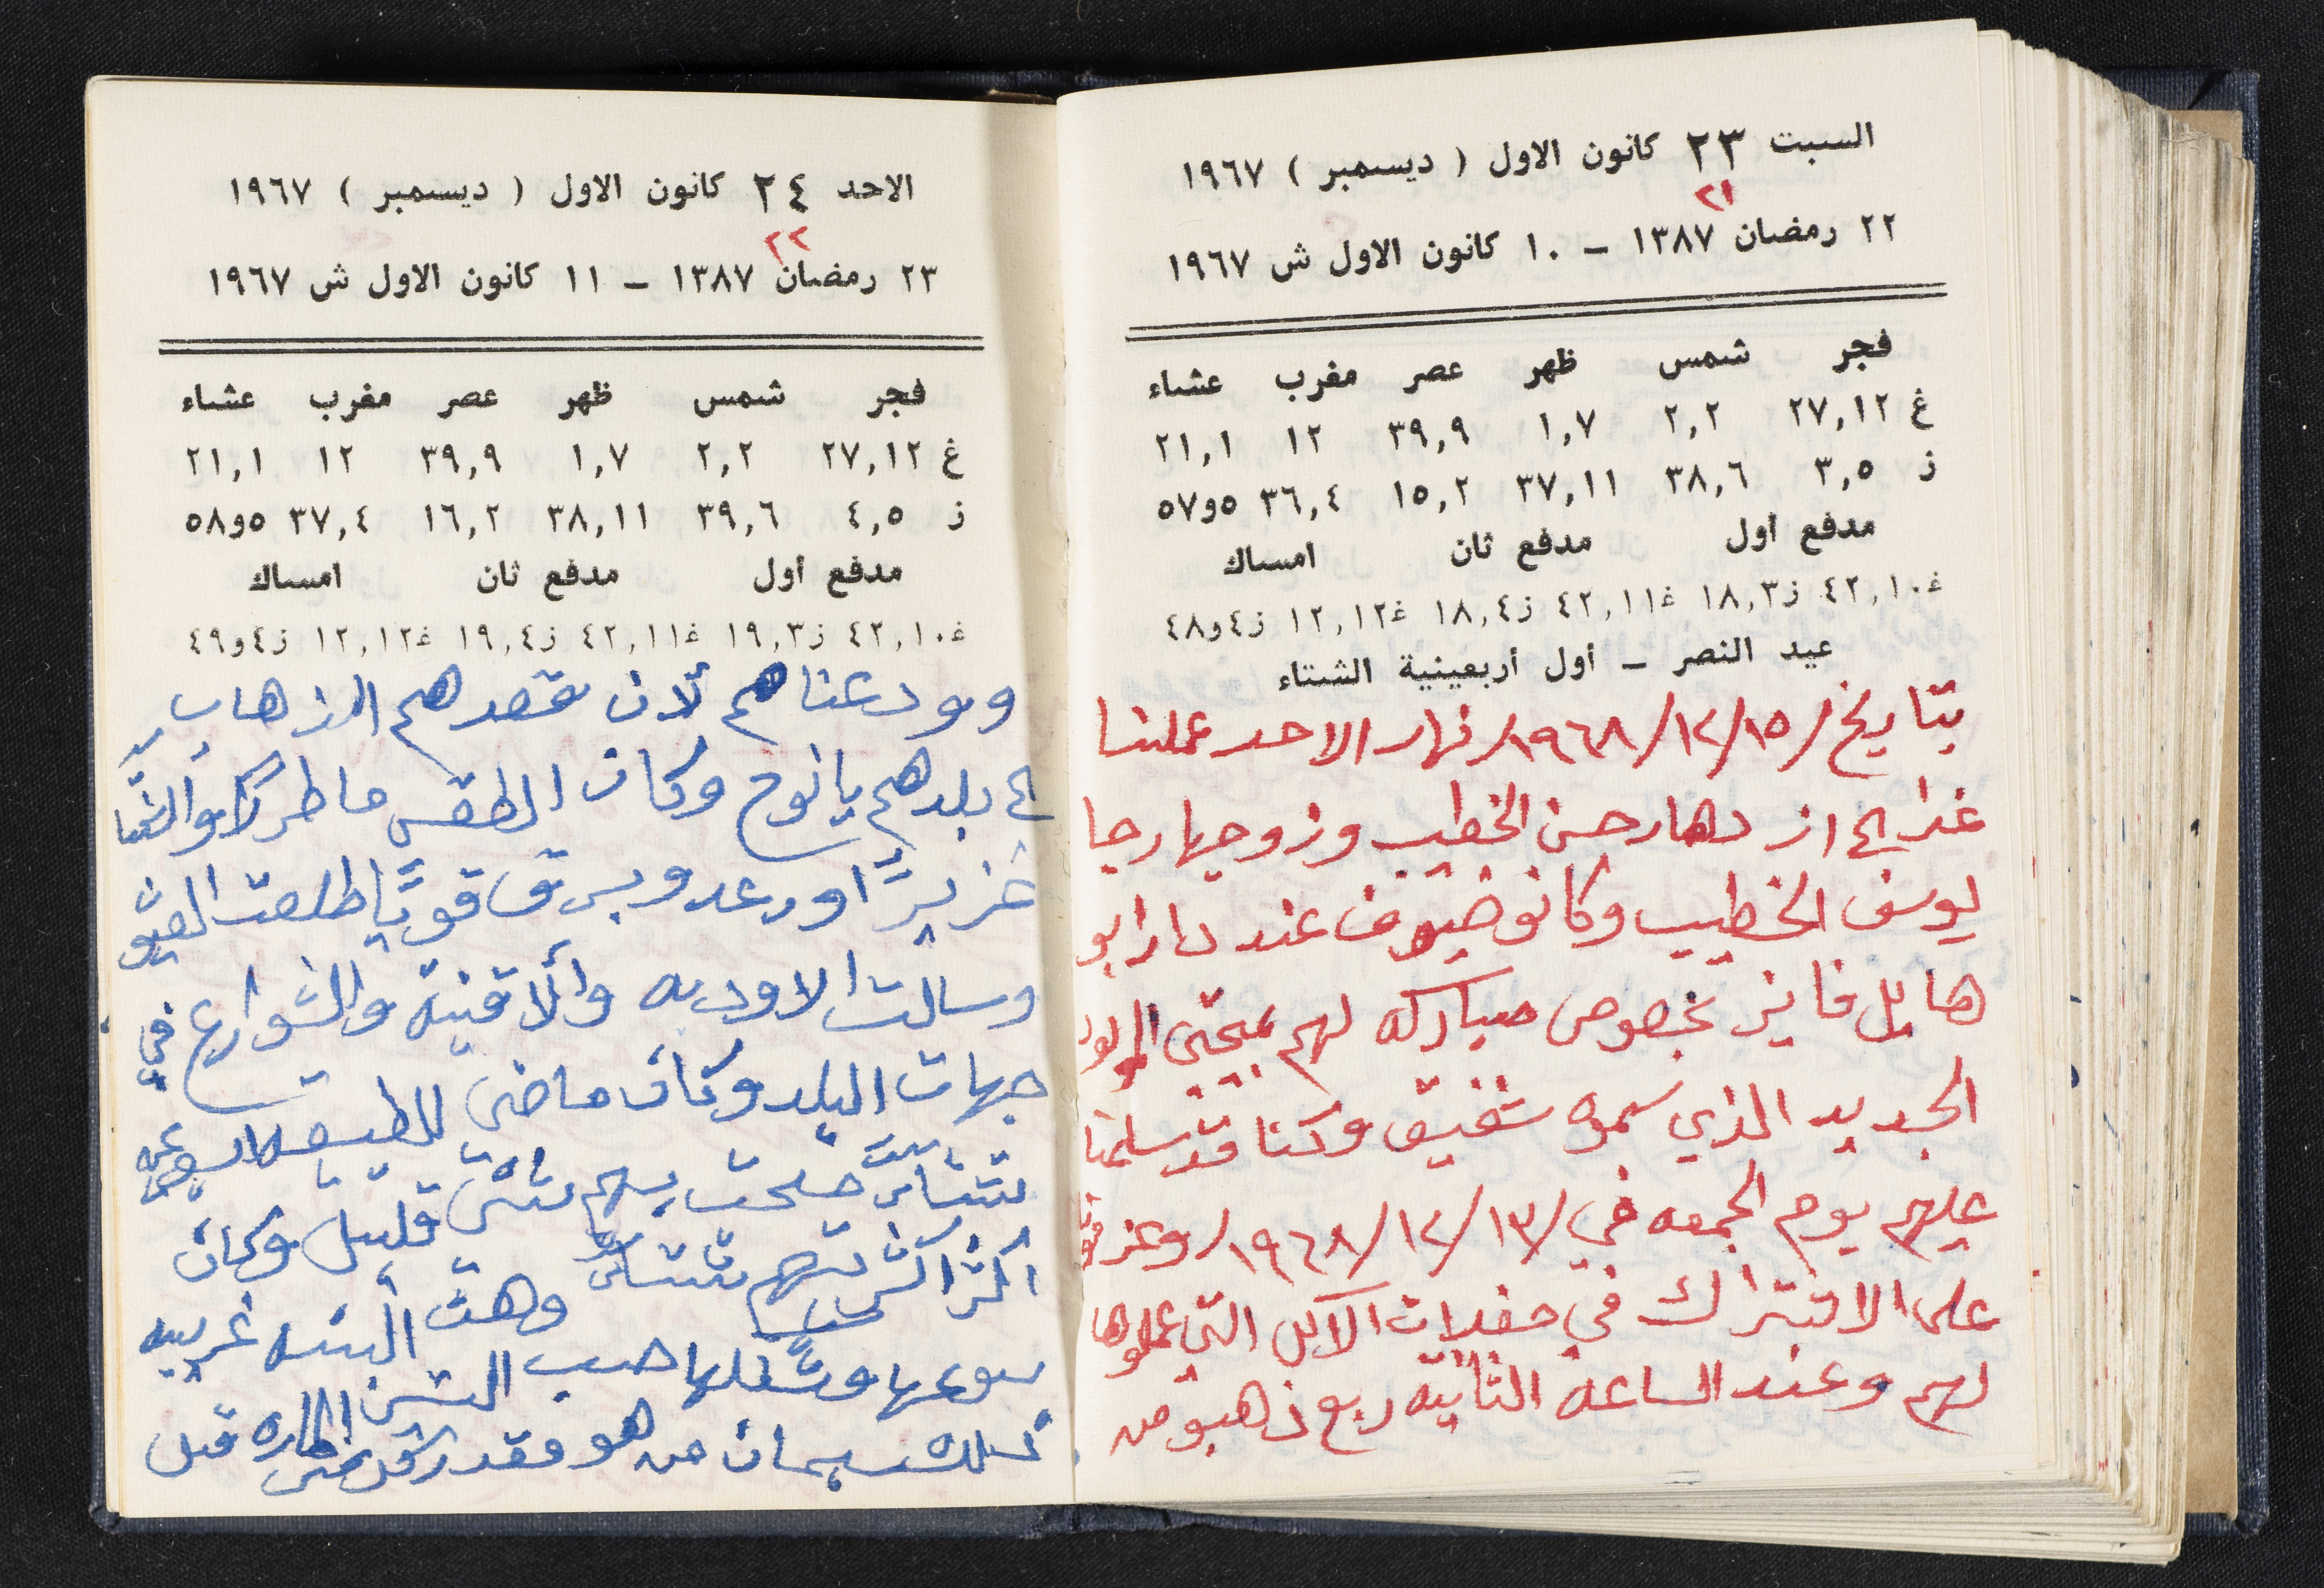 السبت ٢٣ كانون الاول ( ديسمبر ) ١٩٦٧
٢١
٢٢ رمضان ١٣٨٧ – ١٠ كانون الاول ش ١٩٦٧
فجر شمس ظهر عصر مغرب عشاء
غ ٢٧,١٢ ٢,٢ ١,٧ ٣٩,٩ ١٢ ٢١,١
ز ٣,٥ ٣٨,٦ ٣٧,١١ ١٥,٢ ٣٦,٤ ٥و٥٧
مدفع أول مدفع ثان امساك
غ٤٢,١٠ ز١٨,٣ غ٤٢,١١ ز١٨,٤ غ١٢,١٢ ز٤و٤٨
عيد النصر – أول أربعينية الشتاء
بتاريخ /١٥/١٢/١٩٦٨/ نهار الاحد عملنا
غدا الى ازدهار حسن الخطيب وزوجها رجا
يوسف الخطيب وكانو ضيوف عند دار ابو
هايل فايز بخصوص مباركه لهم بمجئ المولود
الجديد الذي سموه شفيق وكنا قد سلمنا
عليهم يوم الجمعه في /١٣/١٢/١٩٦٨/ وعزمونا
على الاشتراك في حفلات الاكل التي عملوها
لهم وعند الساعه الثانيه ربع ذهبو من
الاحد ٢٤ كانون الاول ( ديسمبر ) ١٩٦٧
٢٢
٢٣ رمضان ١٣٨٧ – ١١ كانون الاول ش ١٩٦٧
فجر شمس ظهر عصر مغرب عشاء
غ ٢٧,١٢ ٢,٢ ١,٧ ٣٩,٩ ١٢ ٢١,١
ز ٤,٥ ٣٩,٦ ٣٨,١١ ١٦,٢ ٣٧,٤ ٥و٥٨
مدفع أول مدفع ثان امساك
غ٤٢,١٠ ز١٩,٣ غ٤٢,١١ ز١٩,٤ غ١٢,١٢ ز٤و٤٩
وودعناهم لان مقصدهم الذهاب
الى بلدهم يانوح وكان الطقس ماطرًا والشتا
غزيرًا ورعد وبرق قويًا طلعت
وسالت الاوديه والاقنية والشوارع في
جهات البلد وكان ماضى
صلحت بهم شئ قليل وكان
اكثر وهت السنه غريبه
صب
من هو قبل